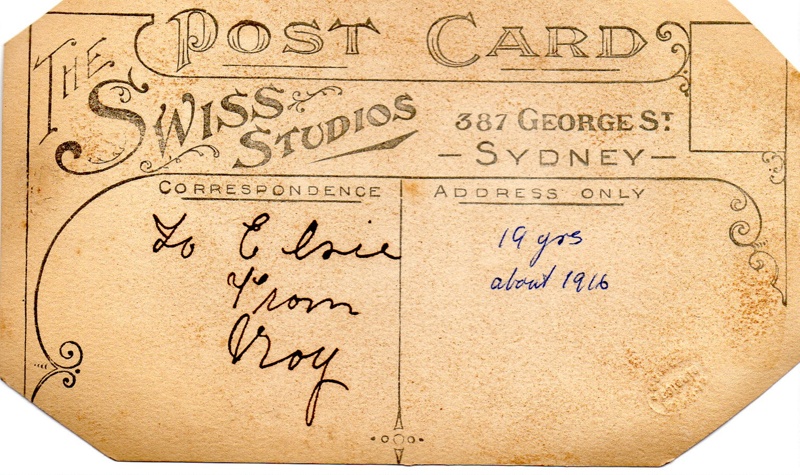 POST CARD
THE
SWISS
STUDIOS
387 GEORGE ST
— SYDNEY —
CORRESPONDENCE
ADDRESS ONLY
To Elsie
From
Roy
19 yrs
about 1916